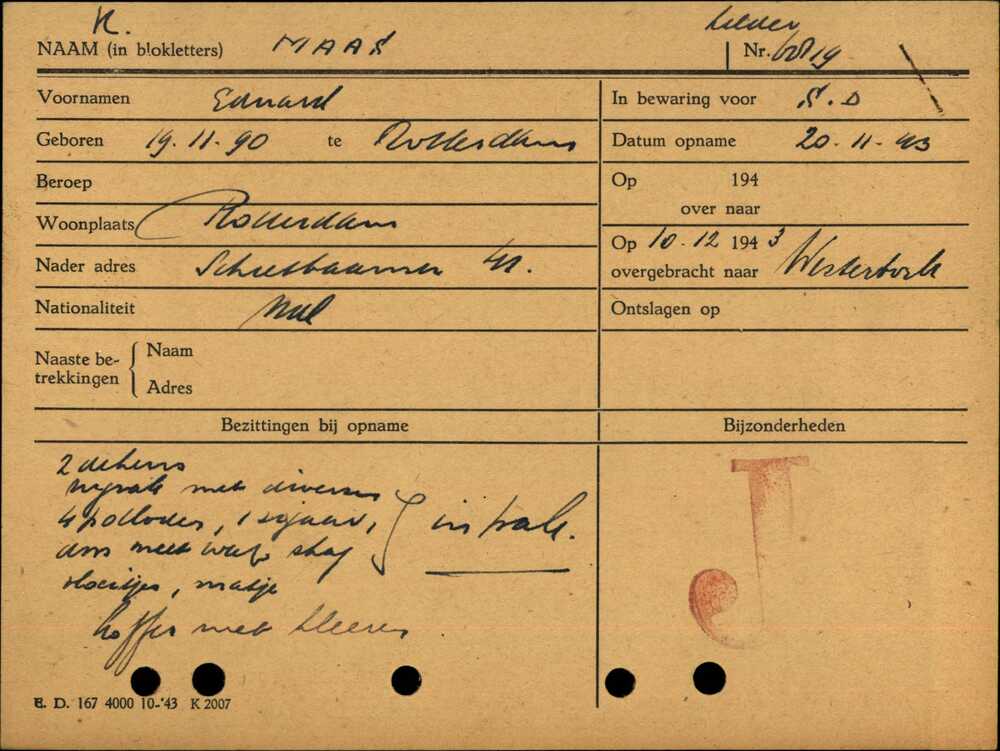 K.
kelder
NAAM (in blokletters) MAAS Nr. 6819
Voornamen Eduard In bewaring voor S.D
Geboren 19.11.90 te Rotterdam Datum opname 20-11-43
Beroep Op 194
over naar
Woonplaats Rotterdam
Op 10.12 1943
Nader adres Schietbaanlaan 41. overgebracht naar Westerbork
Nationaliteit Ned Ontslagen op
Naaste be-
trekkingen { Naam
Adres
Bezittingen bij opname Bijzonderheden
2 dekens J
met diversen
4 potloden, 1 sigaar, } in zak.
doos met shag
vloeitjes, matje
koffer met kleeren
E. D. 167 4000 10-'43 K 2007